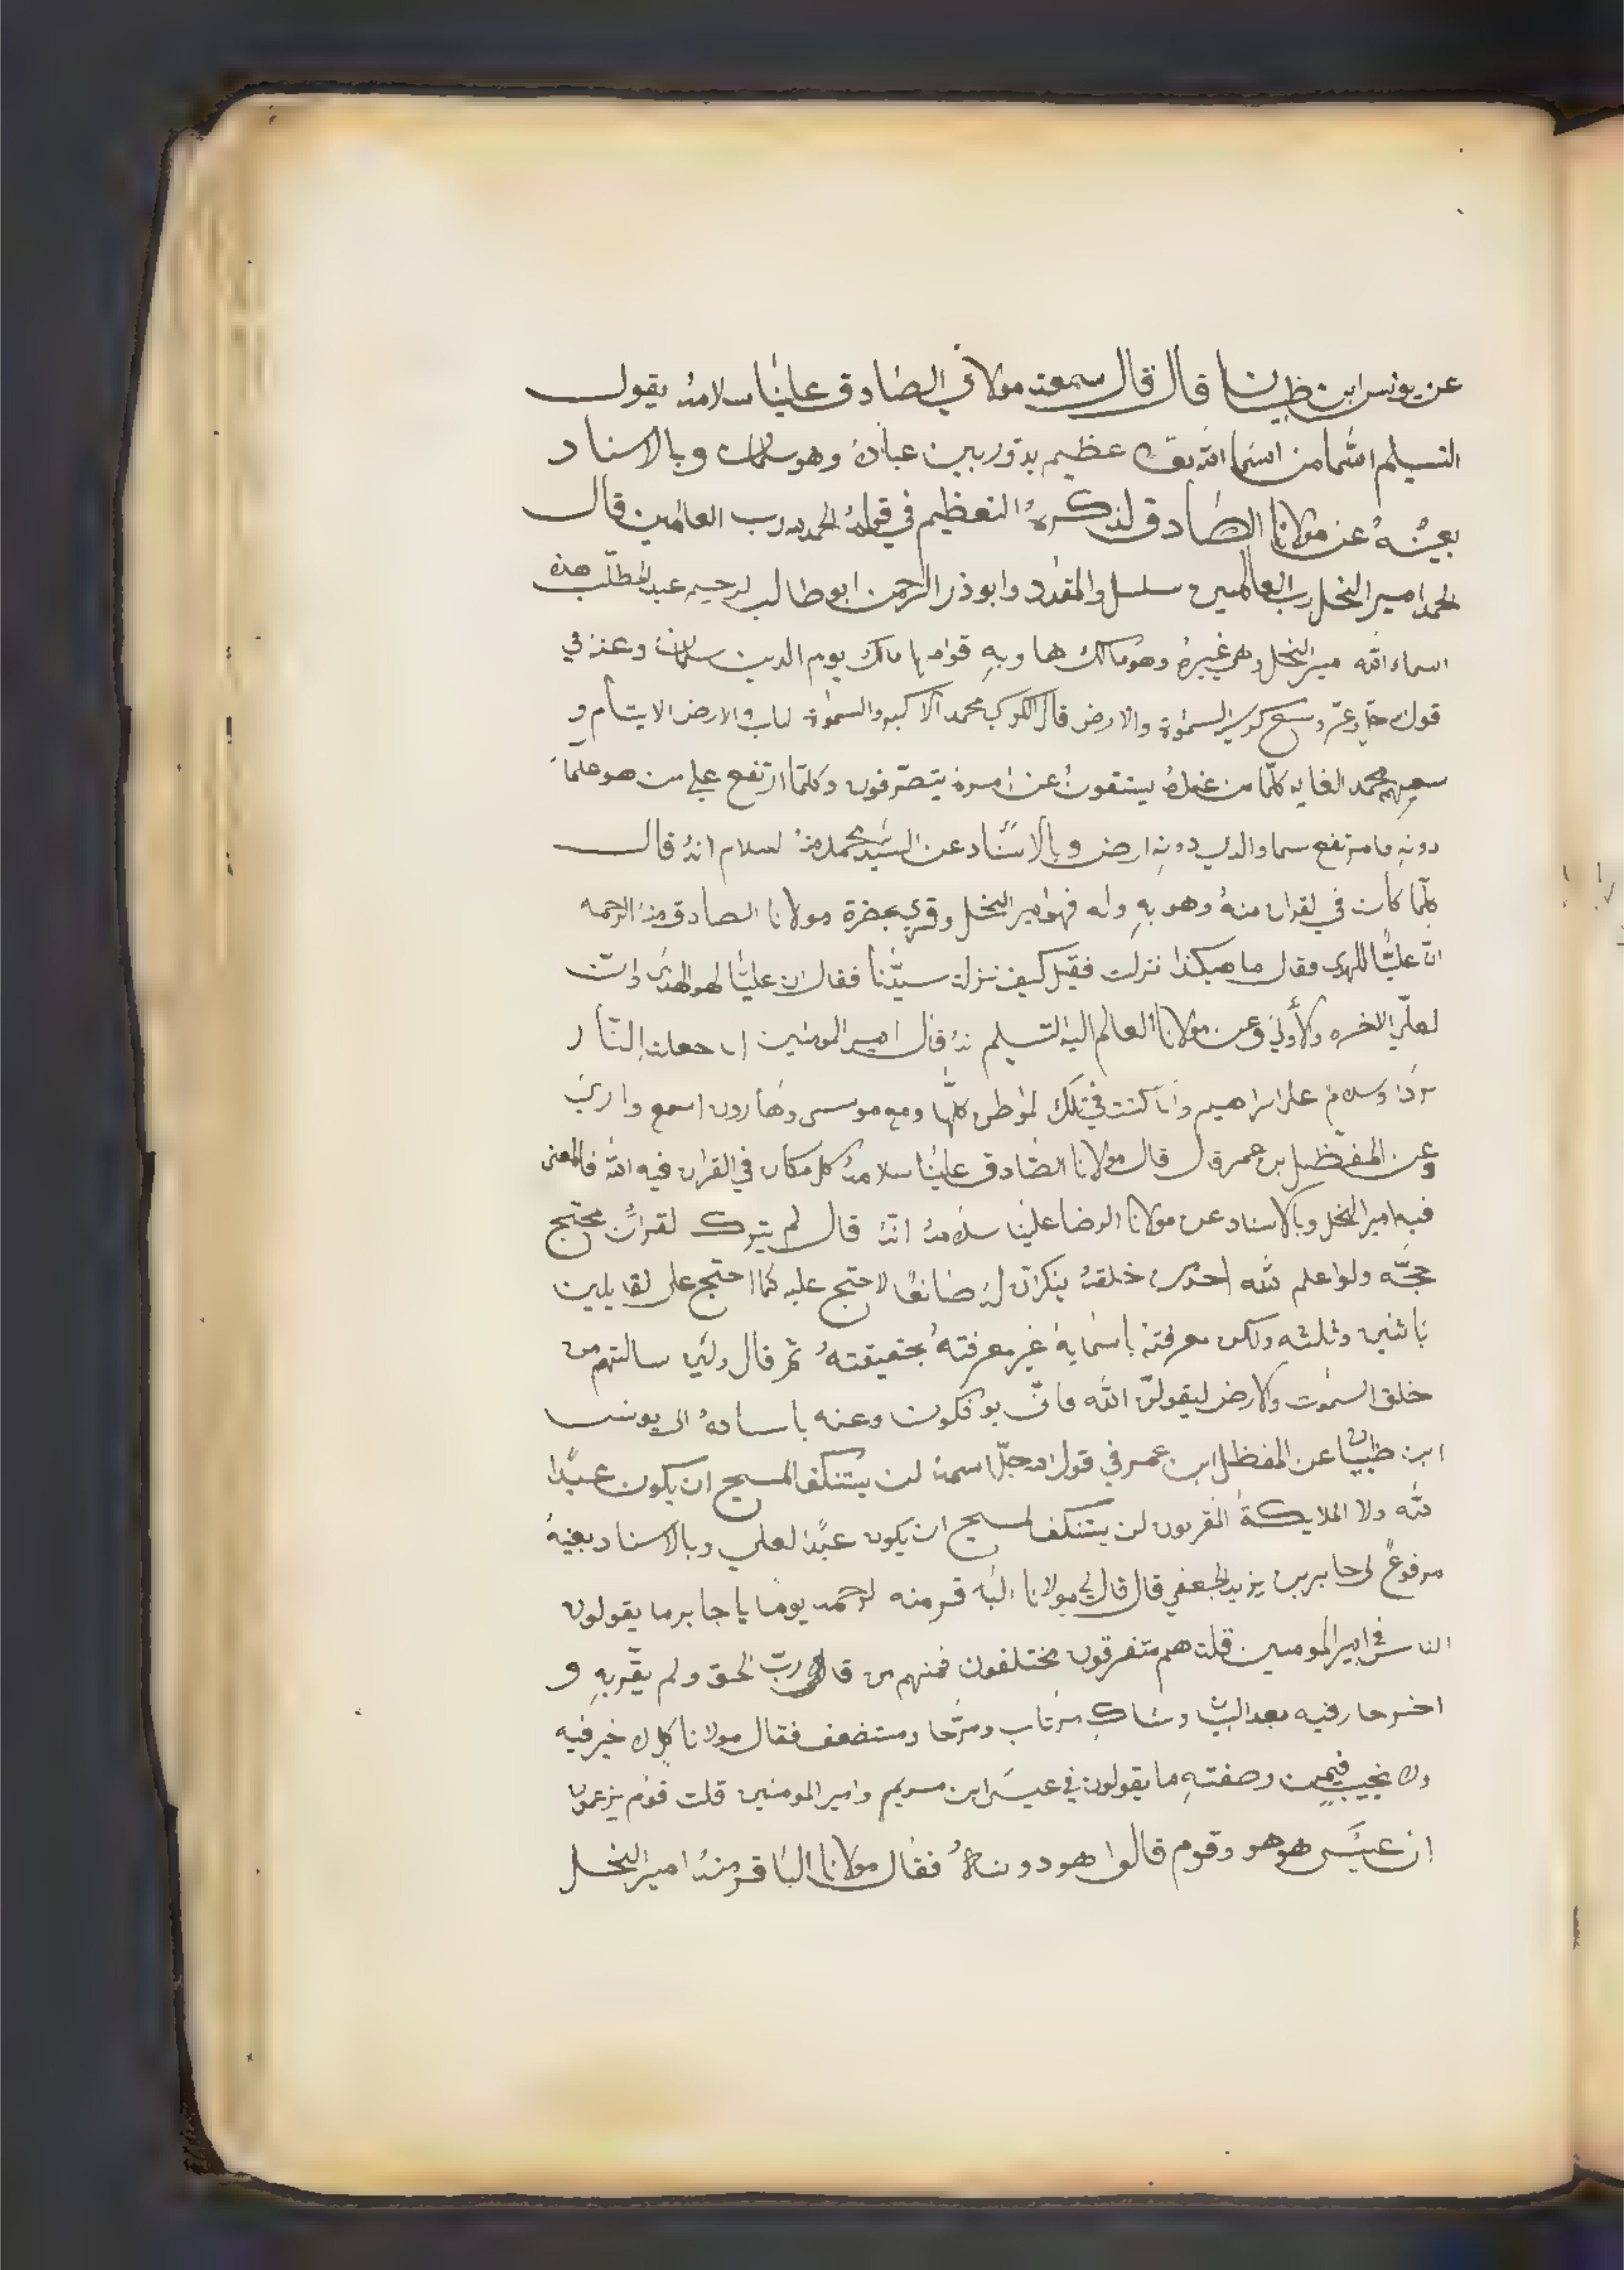 عن يونس ابن ظبيان قال قال سمعت مولاي الصادق علينا سلامهُ يقول
التسليم اسما من اسما الله عظيم يدور بين عباده وهو سلمان وبالاسناد
بعينهُ عن مولانا الصادق لذكرهُ التعظيم في قولهُ الحمد لله رب العالمين قال
الحمد امير النحل رب العالمين سلسل والمقداد وابوذر الرحمن ابو طالب لرحيم عبد المطلب هذه
اسماء الله مير النحل وهي غيرهُ وهو مالك ها وبهِ قوامها مالك يوم الدين سلمان وعنه في
قوله جل وعز وسع كرسيه السموات والارض قال الكرسي محمد الاكبر والسموات والارض الايتام و
محمد الغايه كلما من عنده عن امره يتصرفون وكلما ارتفع علي من هو علما
دونه فا مرتفع سما والدي دونهِ ارض وبالاسناد عن السيد محمد منهُ لسلام انهُ قال
كلما كان في لقران منهُ وهو بهِ وله فهو امير النحل وقري بحضرة مولانا الصادق منهُ الرحمه
ان عليًا للهدى فقال ما هيكذا نزلت فقيل كيف نزلت سيدنا فقال ان عليًا لهو الهدى وان
لعلي الاخره والأولى وعن مولانا العالم اليه التسليم قال امير المومنين جعلت النار
بردا وسلام على ابراهيم وانا كنت في تلك لمواطن كلها ومع موسى وهارون اسمع وارى
وعن المفضل بن عمر قال قال مولانا الصادق علينا سلامهُ كل مكان في القران فيه الله فالمعنى
فيه امير النحل وبالاسناد عن مولانا الرضا علينا سلامهُ انهُ قال لم يترك لقران محتج
حجه ولو اعلم لله احد من خلقهُ ينكر ان لهُ صانعًا لاحتج عليه كما احتج على لقايلين
باثنين وثلثه ولكن معرفتهُ باسمايهُ غير معرفتهُ بحقيقتهُ ثم قال ولين سالتهم من
خلق السموت والارض ليقولن الله فانى يوفكون وعنه باسنادهُ الى يونس
ابن ظبيان عن المفظل ابن عمر في قول الله جل اسمهُ لن يستنكف المسيح ان يكون عبدًا
لله ولا الملايكة المقربون لن يستنكف لمسيح ان يكون عبدًا لعلي وبالاسناد بعينهُ
مرفوعً لى جابر بن يزيد الجعفي قال قال لي مولانا الباقر منه لرحمه يوما يا جابر ما يقولون
الناس في امير المومنين قلت هم متفرقون مختلفون فمنهم من قال رب لحق ولم يقر بهِ و
اخر حار فيه بعد وشاك مرتاب ومستضعف فقال مولانا كل لا خير فيه
ولا نجيب فيمن وصفتهِ ما يقولون في عيسى ابن مريم وامير المومنين قلت قوم يزعمون
ان عيسى هو هو وقوم قالوا هو دونهُ فقال مولانا الباقر منهُ امير النحل